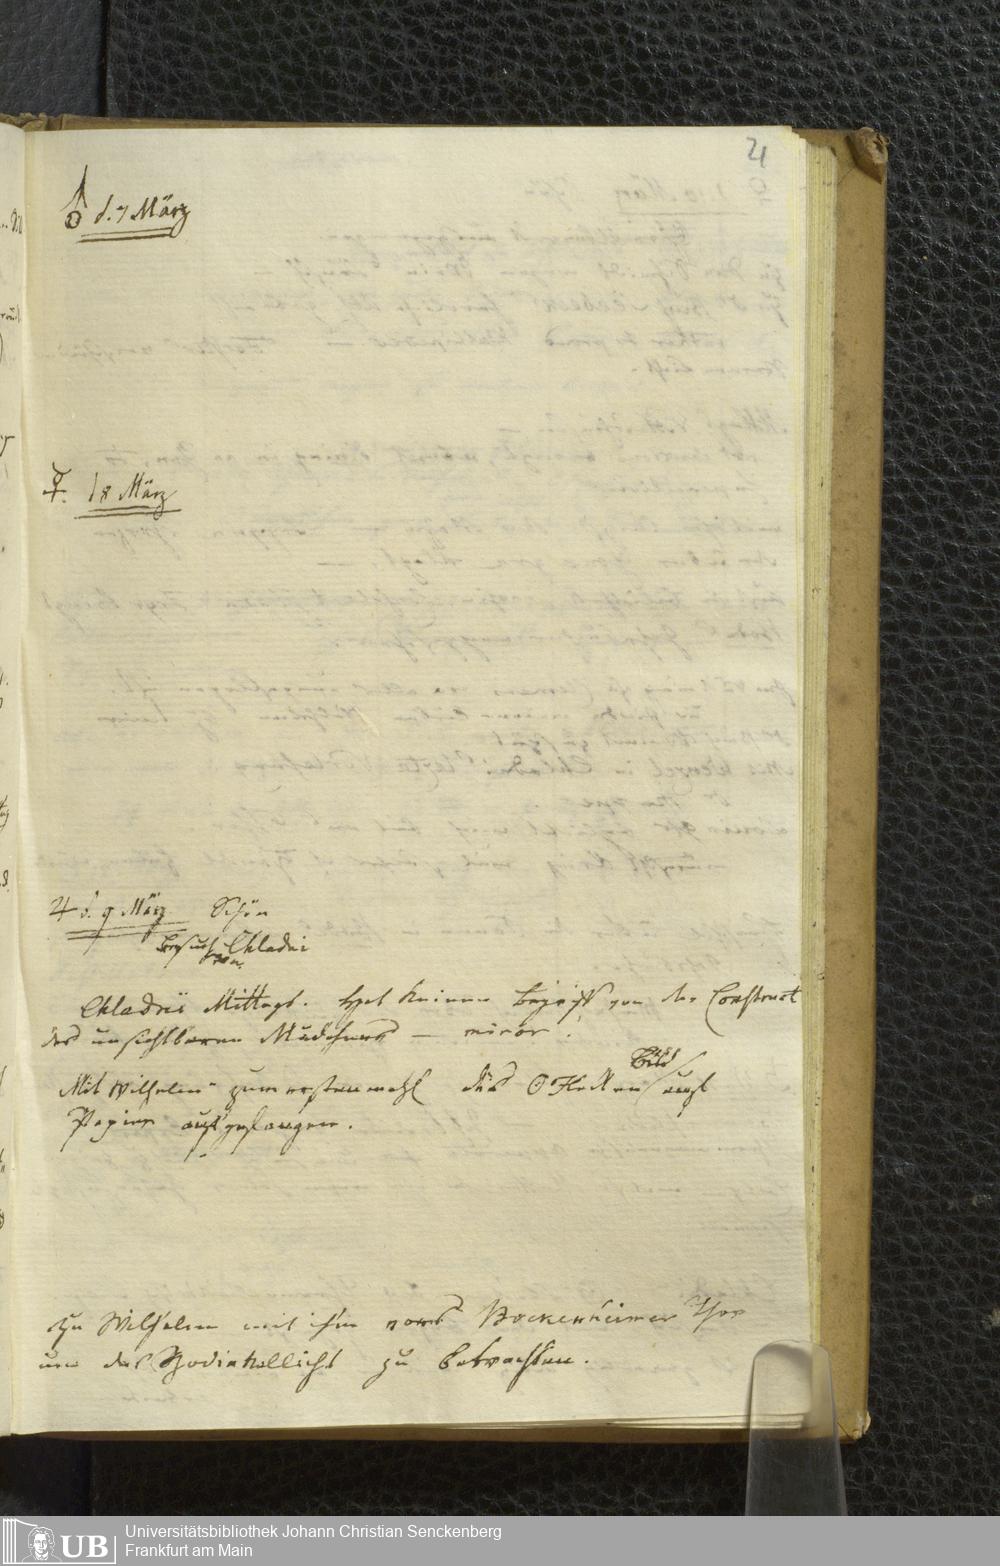 21
♂ d. 7 März
☿. 18 März
♃ d. 9 März Schön
Besuch von Chladni
Chladni Mittags. Hat keinen Begriff von der Construct
des unsichtbaren Mädchens — miror!
Mit Wilhelm zum erstenmahl das ☉ Flecken Bild auf
Papier aufgefangen.
Zu Wilhelm mit ihm vors Bockenheimer Thor
um das Zodiakallicht zu betrachten.
UB
Universitätsbibliothek Johann Christian Senckenberg
Frankfurt am Main